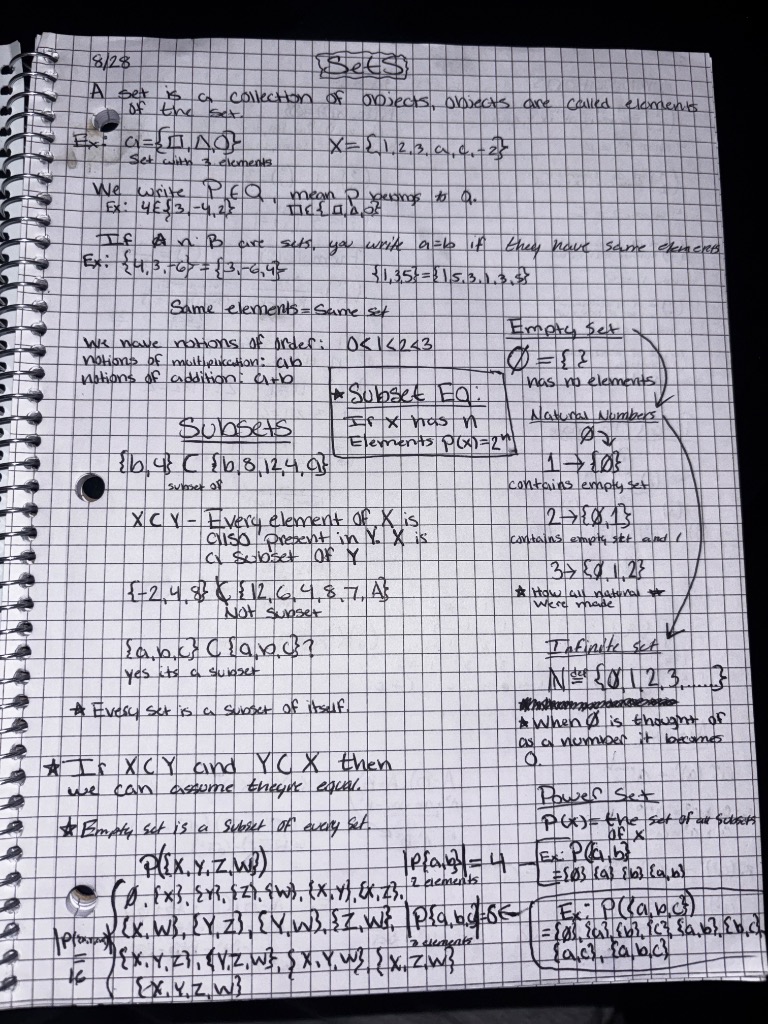 8/28
Sets
A set is a collection of objects, objects are called elements
of the set.
Ex: a={□,Δ,O}
set with 3 elements
X={1,2,3,a,c,-2}
We write P∈Q, mean P belongs to Q.
Ex: 4∈{3,-4,2} □∈{□,Δ,O}
If A n B are sets, you write a=b if they have same elements
Ex: {4,3,-6}={3,-6,4}
{1,3,5}={1,5,3,1,3,5}
Same elements=Same set
We have notions of order: 0<1<2<3
notions of multiplication: ab
notions of addition: a+b
* Subset Eq:
If x has n
Elements P(x)=2ⁿ
Subsets
{b,4} ⊂ {b,8,12,4,a}
subset of
X⊂Y - Every element of X is
also present in Y. X is
a subset of Y
{-2,4,8} ⊄ {12,6,4,8,7,A}
Not subset
{a,b,c} ⊂ {a,b,c}?
yes its a subset
* Every set is a subset of itself.
* If X⊂Y and Y⊂X then
we can assume theyre equal.
* Empty set is a subset of every set.
P({X,Y,Z,W})
∅, {X}, {Y}, {Z}, {W}, {X,Y}, {X,Z},
{X,W}, {Y,Z}, {Y,W}, {Z,W},
{X,Y,Z}, {Y,Z,W}, {X,Y,W}, {X,Z,W}
{X,Y,Z,W}
=
16
|P{a,b}|=4
2 elements
|P{a,b,c}|=8←
elements
Empty set
∅={ }
has no elements
Natural Numbers
∅
1→{∅}
contains empty set
2→{∅,1}
contains empty set and 1
3→{∅,1,2}
* How all natural *
were made
Infinite set
ℕ def= {∅,1,2,3,......}
* When ∅ is thought of
as a number it becomes
0.
Power Set
P(x)=the set of all subsets
of x
Ex: P({a,b}
={∅} {a} {b} {a,b}
Ex: P({a,b,c})
={∅},{a},{b},{c},{a,b},{b,c}
{a,c}, {a,b,c}